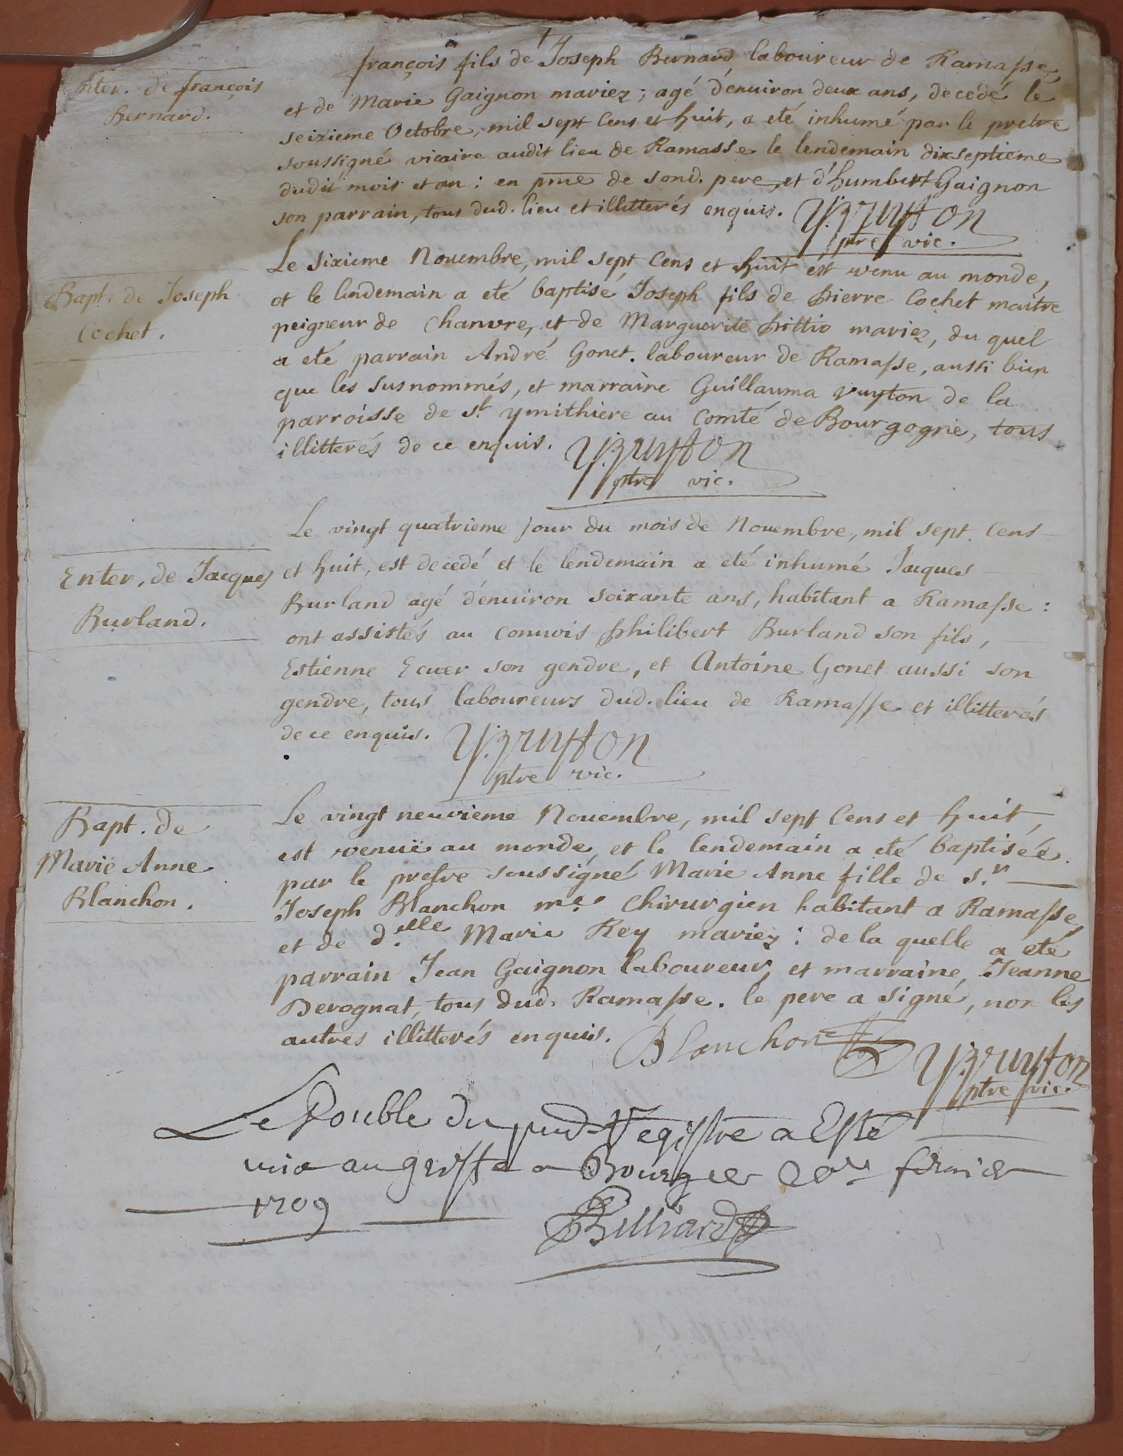 Enter. de françois
Bernard.
françois fils de Joseph Bernard, laboureur de Ramasse,
et de Marie Gaignon mariez ; agé d'enuiron deux ans, decedé le
seizieme Octobre, mil sept Cens et huit, a eté inhumé par le pretre
soussigné vicaire audit lieu de Ramasse le lendemain dixseptieme
dudit mois et an : en pnce de sond. pere, et d'humbert Gaignon
son parrain, tous dud. lieu et illitterés enquis.
ptre vic.
Bapt. de Joseph
Cochet.
Le sixieme Nouembre, mil sept Cens et huit est venu au monde,
et le lendemain a eté baptisé Joseph fils de Pierre Cochet maitre
peigneur de Chanvre, et de Marguerite Pittio mariez, du quel
a eté parrain André Gonet laboureur de Ramasse, aussi bien
que les susnommés, et marraine Guillauma vuyton de la
parroisse de st ymithiere au Comté de Bourgogne, tous
illitterés de ce enquis.
ptre vic.
Enter. de Jacques
Burland.
Le vingt quatrieme jour du mois de Nouembre, mil sept Cens
et huit, est decedé et le lendemain a eté inhumé Jacques
Burland agé d'enuiron soixante ans, habitant a Ramasse :
ont assistés au conuois philibert Burland son fils,
Estienne Ecuer son gendre, et Antoine Gonet aussi son
gendre, tous laboureurs dud. lieu de Ramasse et illitterés
de ce enquis.
ptre vic.
Bapt. de
Marie Anne
Blanchon.
Le vingt neuvieme Nouembre, mil sept Cens et huit,
est venuë au monde, et le lendemain a eté baptisée
par le prestre soussigné Marie Anne fille de s.r
Joseph Blanchon m.e Chirurgien habitant a Ramasse,
et de d.elle Marie Rey mariez : de la quelle a eté
parrain Jean Gaignon laboureur, et marraine Jeanne
Derognat, tous dud. Ramasse. le pere a signé, non les
autres illitterés enquis.
Blanchon
ptre vic.
Le Double du pnd Registre a Esté
mis au greffe a Bourg le feurier
1709
Billiard